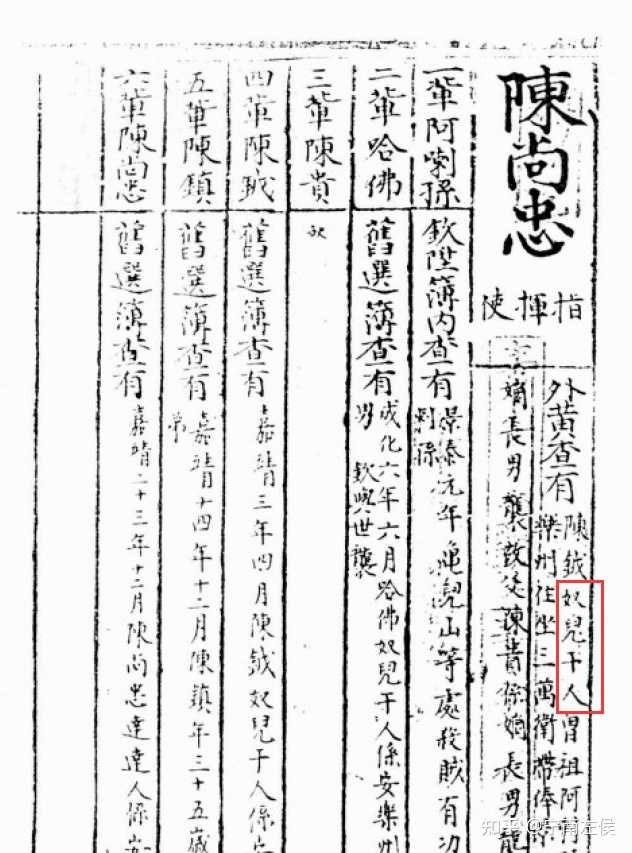 陳尚忠
指揮使
外黃查有
陳鉞奴兒干人曾祖阿
樂州住坐三萬衛帶俸
嫡長男襲故父陳貴係嫡長男
一輩阿喇孫
欽陞簿內查有
景泰元年 兒山等處殺賊有功
剌孫
二輩哈佛
舊選簿查有
成化六年六月哈佛奴兒干人係安樂州
男 欽與世襲
三輩陳貴
四輩陳鉞
舊選簿查有
嘉靖三年四月陳鉞奴兒干人係安
五輩陳鎮
舊選簿查有
嘉靖十四年十二月陳鎮年三十五歲
六輩陳尚忠
舊選簿查有
嘉靖二十三年十二月陳尚忠達達人係安
知乎 @宁南左侯